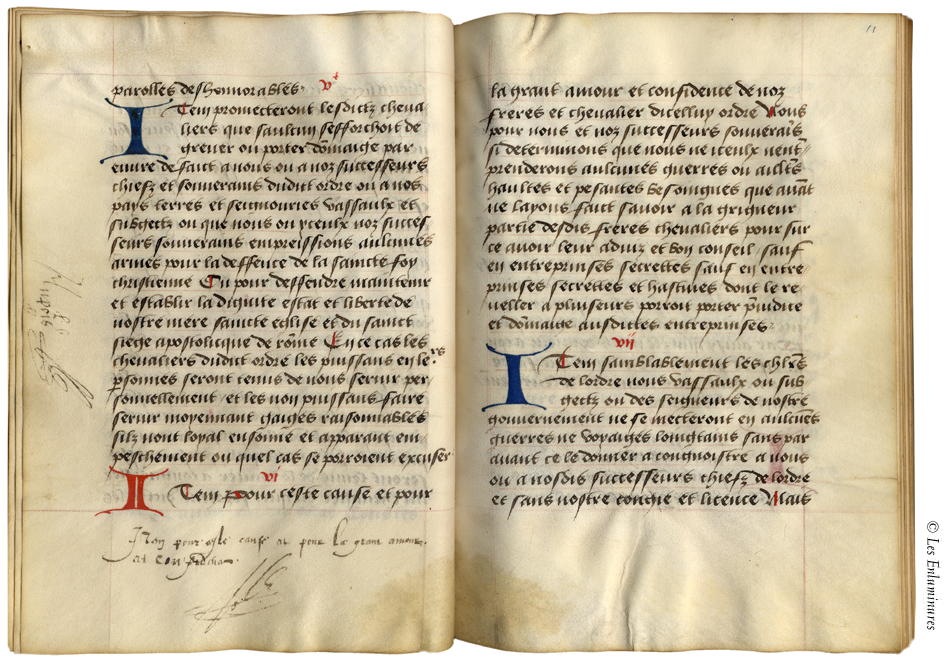 parolles deshonnorables
v
Item promecteront lesdictz cheva
liers que saulcun sefforchoit de
grever ou porter dommaige par
euure de faict a nous ou a noz successeurs
chiefz et souuerains dudict ordre ou a nos
pays terres et seignouries vassaulx et
subgectz ou que nous ou yceulx noz succes
seurs souuerains empreissions aulcunes
armes pour la deffence de la saincte foy
chrestienne Ou pour deffendre maintenir
et establir la dignite estat et liberte de
nostre mere saincte eglise et du sainct
siege apostolicque de rōme En ce cas les
chevaliers dudict ordre les puissans en leˢ
ꝑsonnes seront tenus de nous seruir per
sonnellement et les non puissans faire
seruir moyennant gaiges raisonnables
silz nont loyal ensonne et apparant em
peschement ou quel cas se porroient excuser
vi
Item pour ceste cause et pour
Item pour ceste cause et pour la grant amour
et
11
la grant amour et confidence de noz
freres et chevalier dicelluy ordre Nous
pour nous et noz successeurs souuerais
si determinons que nous ne iceulx nentre
prenderons aulcunes guerres ou aultres
haultes et pesantes besoingnes que auāt
ne layons faict savoir a la grigneur
partie desdis freres chevaliers pour sur
ce avoir leur aduiz et bon conseil sauf
en entreprinses secrettes sauf en entre
prinses secrettes et hastiues dont le re
veller a pluseurs porroit porter p̄iudice
et dōmaige ausdictes entreprinses
vii
Item samblablement les chl̄rs
de lordre nous vassaulx ou sub
gectz ou des seigneurs de nostre
gouuernement ne se mecteront en aulcūes
guerres ne voyaiges loingtains sans par
auant ce le donner a congnoistre a nous
ou a nosdis successeurs chiefz de lordre
et sans nostre congie et licence Mais
© Les Enluminures